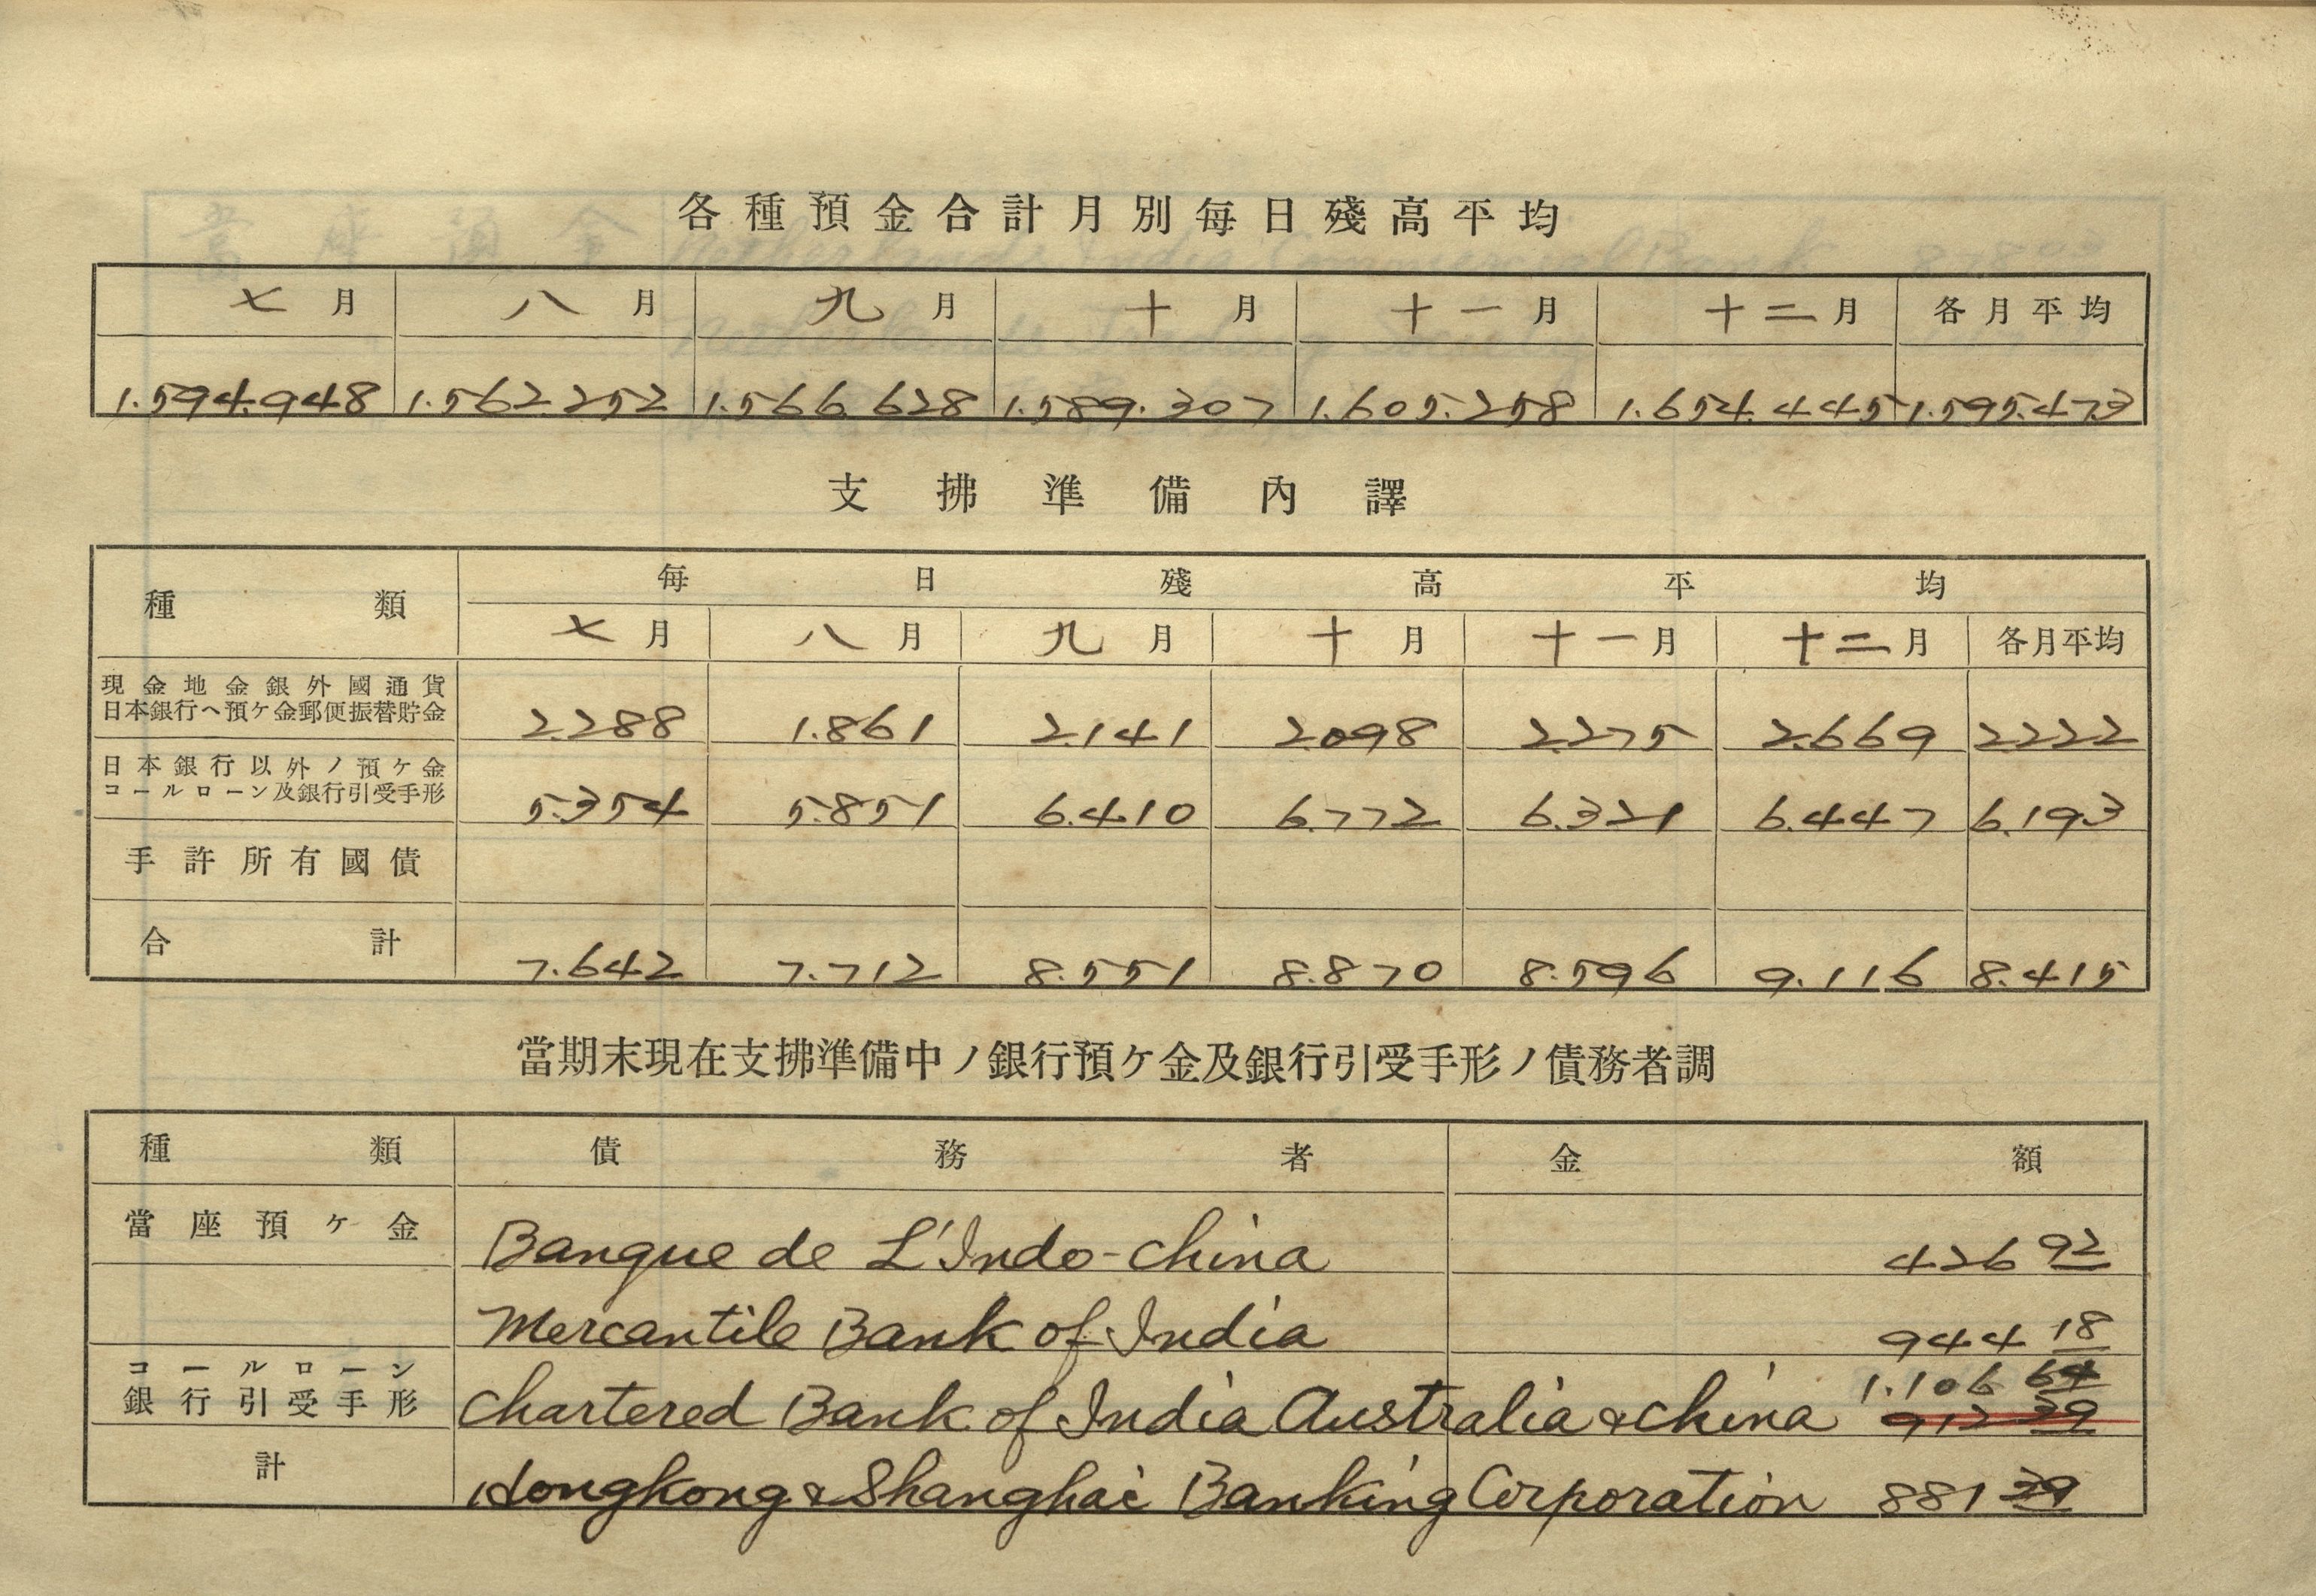 各種預金合計月別毎日殘高平均
七月 八月 九月 十月 十一月 十二月 各月平均
1.594.948 1.562.252 1.566.628 1.589.307 1.605.258 1.654.445 1.595.473
支拂準備內譯
種類 毎日殘高平均
七月 八月 九月 十月 十一月 十二月 各月平均
現金地金銀外國通貨
日本銀行ヘ預ケ金郵便振替貯金
2.288 1.861 2.141 2.098 2.275 2.669 2.222
日本銀行以外ノ預ケ金
コールローン及銀行引受手形
5.354 5.851 6.410 6.772 6.321 6.447 6.193
手許所有國債
合計 7.642 7.712 8.551 8.870 8.596 9.116 8.415
當期末現在支拂準備中ノ銀行預ケ金及銀行引受手形ノ債務者調
種類 債務者 金額
當座預ケ金 Banque de L'Indo-China 426 92
Mercantile Bank of India 944 18
コールローン 1.106 64
銀行引受手形 Chartered Bank of India Australia & China 912 39
計 Hongkong & Shanghai Banking Corporation 881 39